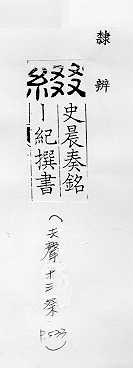 隸辨
綴
史晨奏銘
｜紀撰書
(去聲十三祭 P.533)